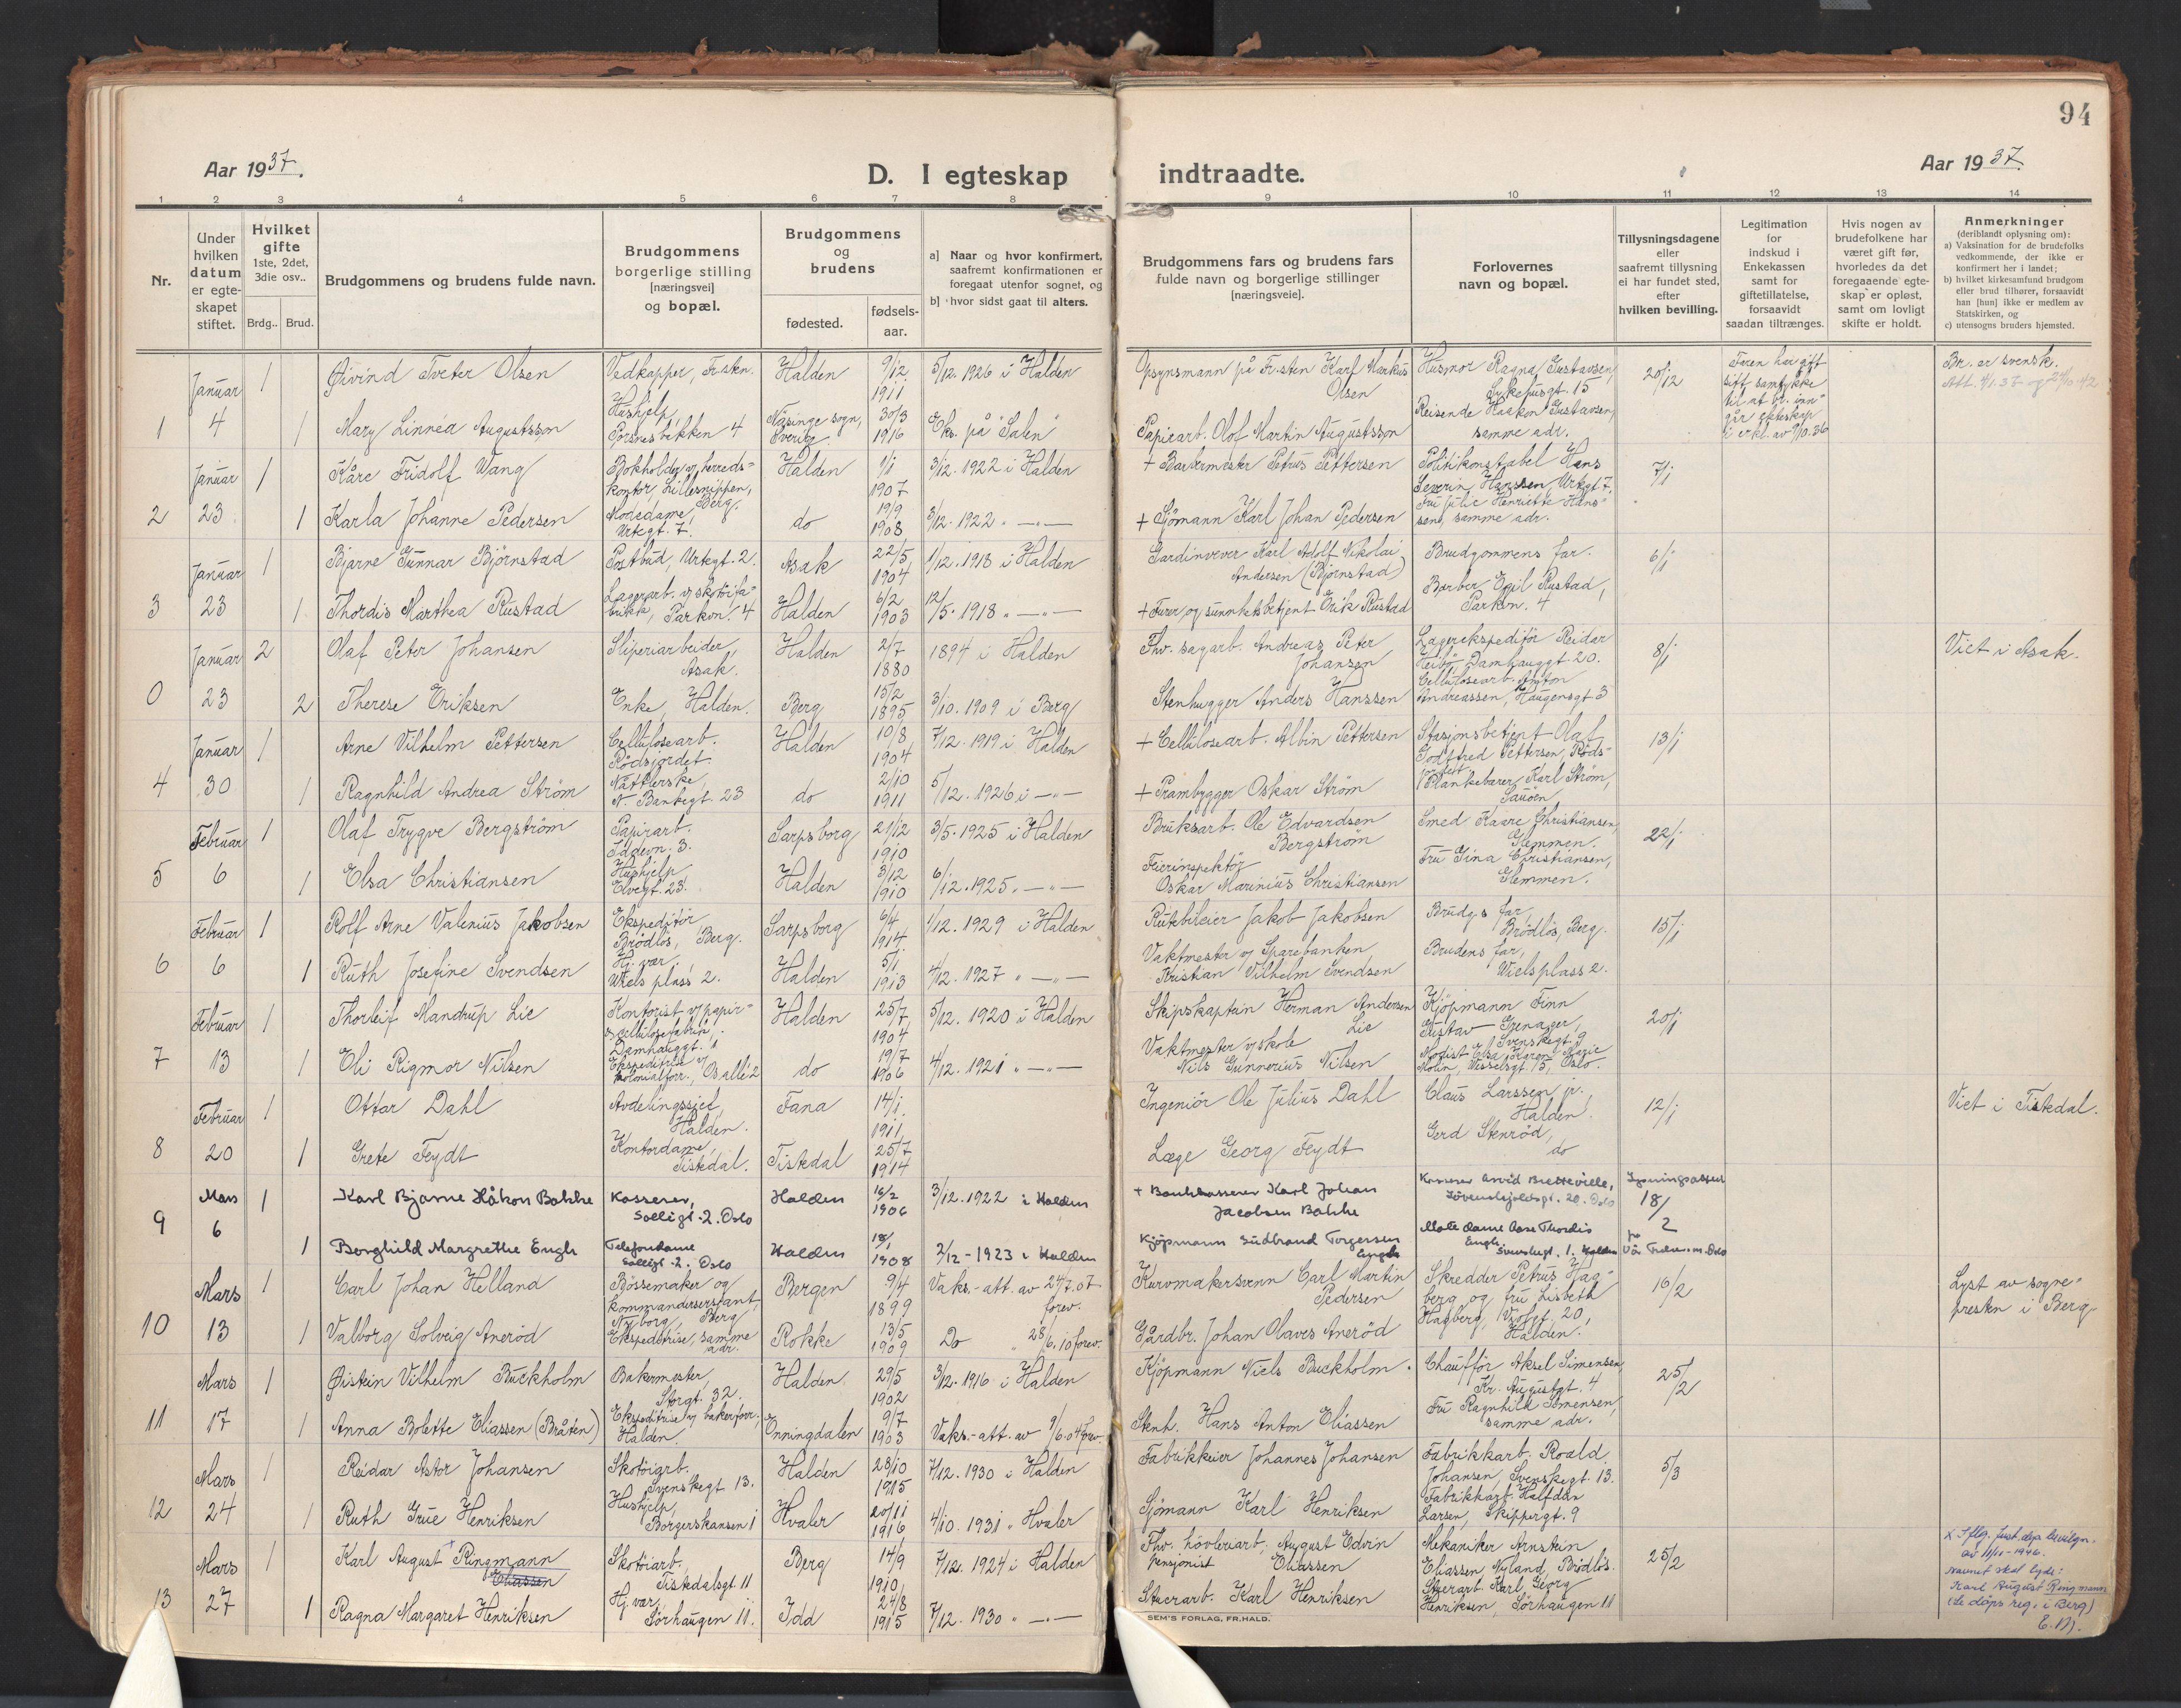 94
Aar 1937.
D. I egteskap indtraadte.
Aar 1937
1 2 3 4 5 6 7 8 9 10 11 12 13 14
Nr.
Under hvilken datum er egteskapet stiftet.
Hvilket gifte 1ste, 2det, 3die osv..
Brdg.. Brud.
Brudgommens og brudens fulde navn.
Brudgommens borgerlige stilling [næringsvei] og bopæl.
Brudgommens og brudens
fødested.
fødsels-aar.
a] Naar og hvor konfirmert, saafremt konfirmationen er foregaat utenfor sognet, og
b] hvor sidst gaat til alters.
Brudgommens fars og brudens fars fulde navn og borgerlige stillinger [næringsveie].
Forlovernes navn og bopæl.
Tillysningsdagene eller saafremt tillysning ei har fundet sted, efter hvilken bevilling.
Legitimation for indskud i Enkekassen samt for giftetillatelse, forsaavidt saadan tiltrænges.
Hvis nogen av brudefolkene har været gift før, hvorledes da det foregaaende egteskap er opløst, samt om lovligt skifte er holdt.
Anmerkninger (deriblandt oplysning om):
a) Vaksination for de brudefolks vedkommende, der ikke er konfirmert her i landet;
b) hvilket kirkesamfund brudgom eller brud tilhører, forsaavidt han [hun] ikke er medlem av Statskirken, og
c) utensogns bruders hjemsted.
1 Januar 4
1 Øivind Tveter Olsen Vedkapper, Fr.sten. Halden 9/12 1911 5/12. 1926 i Halden
Opsynsmann på Fr.sten Karl Markus Olsen
Husmor Ragna Gustavsen, Sykehusgt. 15
20/12
Faren har gift sitt samtykke til at br. inngår ekteskap i erkl. av 9/10.36
Br. er svensk.
1 Mary Linnéa Augustsson Hushjelp, Porsnesbakken 4 Näsinge sogn, Sverige 30/3 1916 Eks. på "Salen"
Papirarb. Olof Martin Augustsson
Reisende Haakon Gustavsen, samme adr.
2 Januar 23
1 Kåre Fridolf Wang Bokholder v/ herredskontor, Lillesnippen, Berg. Halden 1/1 1907 3/12. 1922 i Halden
+ Barbermester Petrus Pettersen
Politikonstabel Hans Severin Hanssen, Urtegt. 7.
7/1
1 Karla Johanne Pedersen Motedame, Urtegt. 7. do 19/9 1908 3/12. 1922 " — " —
+ Sjömann Karl Johan Pedersen
Fru Julie Henriette Hanssen, samme adr.
3 Januar 23
1 Bjarne Gunnar Björnstad Postbud, Urtegt. 2. Asak 22/5 1904 1/12. 1918 i Halden
Gardinvever Karl Adolf Nikolai Andersen (Bjørnstad)
Brudgommens far.
6/1
1 Thordis Marthea Rustad Lagerarb. v/ skotöifabrikk, Parkvn. 4 Halden 6/2 1903 12/5. 1918 — " —
+ Furer og sunnhetsbetjent Erik Rustad
Barber Egil Rustad, Parkvn. 4
0 Januar 23
2 Olaf Peter Johansen Sliperiarbeider, Asak. Halden 2/7 1880 1894 i Halden
Fhv. sagarb. Andreas Peter Johansen
Lagerekspeditör Reidar Heibö, Damhauggt. 20.
8/1
Viet i Asak.
2 Therese Eriksen Enke, Halden. Berg 15/2 1895 3/10. 1909 i Berg
Stenhugger Anders Hanssen
Cellulosearb. Anton Andreassen, Haugensgt 3
4 Januar 30
1 Arne Vilhelm Pettersen Cellulosearb. Rödsjordet. Halden 10/8 1904 7/12. 1919 i Halden
+ Cellulosearb. Albin Pettersen
Stasjonsbetjent Olaf Godtfred Pettersen, Rödsjordet
13/1
1 Ragnhild Andrea Ström Nätterske, N. Bankegt. 23 do 2/10 1911 5/12. 1926 i — " —
+ Prambygger Oskar Ström
Plankebærer Karl Ström, Sauöen
5 Februar 6
1 Olaf Trygve Bergström Papirarb. Iddevn. 3. Sarpsborg 21/12 1910 3/5. 1925 i Halden
Bruksarb. Ole Edvardsen Bergström
Smed Kaare Christiansen, Glemmen.
22/1
1 Elsa Christiansen Hushjelp Elvegt. 23. Halden 3/12 1910 6/12. 1925. — " —
Feierinspektör Oskar Marinius Christiansen
Fru Gina Christiansen, Glemmen.
6 Februar 6
1 Rolf Arne Valenius Jakobsen Ekspeditör, Brödlös, Berg. Sarpsborg 6/4 1914 1/12. 1929 i Halden
Rutebileier Jakob Jakobsen
Brudgs far, Brödlös, Berg.
15/1
1 Ruth Josefine Svendsen Hj. vær., Wiels plass 2. Halden 5/1 1913 4/12. 1927 " — " —
Vaktmester v/ Sparebanken, Kristian Vilhelm Svendsen
Brudens far, Wielsplass 2.
7 Februar 13
1 Thorleif Mandrup Lie Kontorist v/ papir- & cellulosefabrik, Damhauggt. 1 Halden 25/7 1904 5/12. 1920 i Halden
Skipskaptein Herman Andersen Lie
Kjöpmann Finn Gustav Grenager, Svenskegt. 9
20/1
1 Eli Rigmor Nilsen Ekspeditrise v/ kolonialforr., Os allé 2 do 19/7 1906 4/12. 1921 " — " —
Vaktmester v/ skole Nils Gunnerius Nilsen
Modist Elsa Karen Marie Molin, Wesselsgt. 15, Oslo.
8 Februar 20
1 Ottar Dahl Avdelingssjef, Halden. Fana 14/1 1911
Ingeniör Ole Julius Dahl
Claus Larssen jr. Halden.
12/1
Viet i Tistedal.
1 Grete Feydt Kontordame, Tistedal. Tistedal 25/7 1914
Læge Georg Feydt
Gerd Stenröd, do
9 Mars 6
1 Karl Bjarne Håkon Bakke Kasserer, Solligt. 2. Oslo Halden 16/2 1906 3/12. 1922 i Halden
+ Bankkasserer Karl Johan Jacobsen Bakke
Kasserer Arvid Bretteville, Lövenskjoldsgt. 20. Oslo
Lysningsattest 18/2 fra Vår Frelsers m. Oslo
1 Borghild Margrethe Engh Telefondame Solligt. 2. Oslo Halden 18/1 1908 2/12 - 1923 i Halden
Kjöpmann Gudbrand Torgersen Engh
Motedame Aase Thordis Engh Svenskegt. 1. Halden
10 Mars 13
1 Carl Johan Helland Börsemaker og kommandersersjant, Nyborg, Berg Bergen 9/4 1899 Vaks.-att. av 24/7.07 forev.
Kurvmakersvenn Carl Martin Pedersen
Skredder Petrus Hagberg og fru Lisbeth Hagberg, 20, Halden.
16/2
Lyst av sognepresten i Berg
1 Valborg Solveig Aneröd Ekspeditrise, samme adr. Rokke 13/5 1909 Do " 28/6.10 forev.
Gårdbr. Johan Olaves Aneröd
11 Mars 17
1 Øistein Vilhelm Buckholm Bakermester, Storgt. 32. Halden 29/5 1902 3/12. 1916 i Halden
Kjöpmann Niels Buckholm.
Chaufför Aksel Simensen, Kr. Augustgt. 4
25/2
1 Anna Bolette Eliassen (Bråten) Ekspeditrise v/ bakerforr., Halden. Enningdalen 9/7 1903 Vaks.-att. av 9/6.04 forev.
Stenh. Hans Anton Eliassen
Fru Ragnhild Simensen, samme adr.
12 Mars 24
1 Reidar Astor Johansen Skotöiarb. Svenskegt 13. Halden 28/10 1915 7/12. 1930 i Halden
Fabrikkeier Johannes Johansen
Fabrikkarb. Roald Johansen, Svenskegt. 13.
5/3
1 Ruth Grue Henriksen Hushjelp, Borgerskansen 1 Hvaler 20/11 1916 4/10. 1931 " Hvaler
Sjömann Karl Henriksen
Fabrikkarb. Halfdan Larsen, Skippergt. 9
13 Mars 27
1 Karl August Ringmann Eliassen Skotöiarb. Tistedalsgt. 11 Berg 14/9 1910 7/12. 1924 i Halden
Fhv. hövleriarb., pensjonist August Edvin Eliassen
Mekaniker Arnstein Eliassen, Nyland, Brödlös.
25/2
X Iflg. Just.dep. bevilgn. av 11/11-1946. navnet skal lyde: Karl August Ringmann (Se dåps reg. i Berg) E. M.
1 Ragna Margaret Henriksen Hj. vær, Sörhaugen 11. Idd 24/8 1915 7/12. 1930 " — " —
Stuerarb. Karl Henriksen
Stuerarb. Karl Georg Henriksen, Sörhaugen 11
SEM'S FORLAG, FR.HALD.